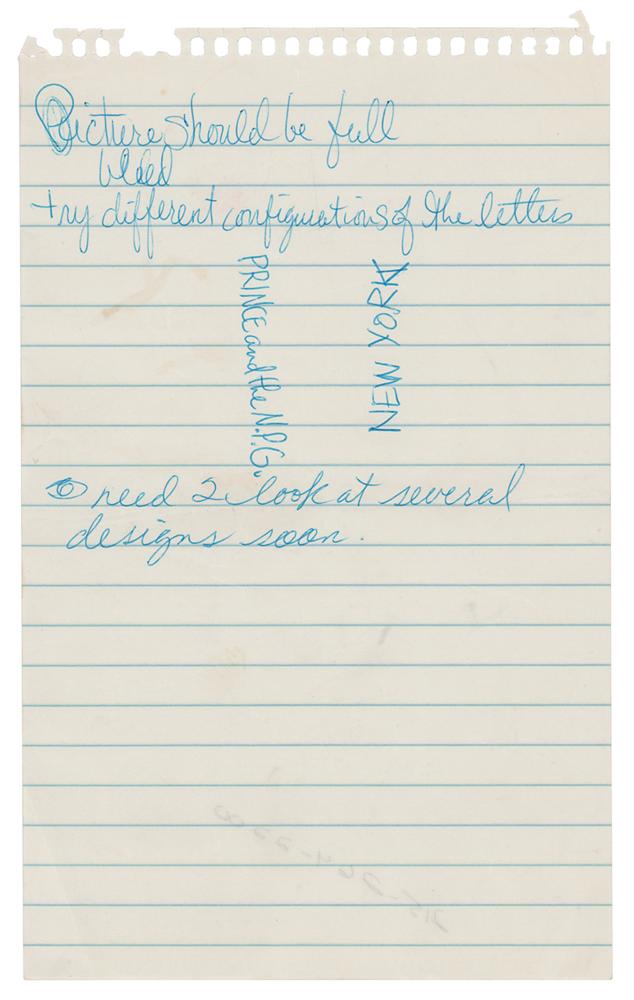 Picture should be full
bleed
try different configurations of the letters
PRINCE and the N.P.G.
NEW YORK
👁 need 2 look at several
designs soon.